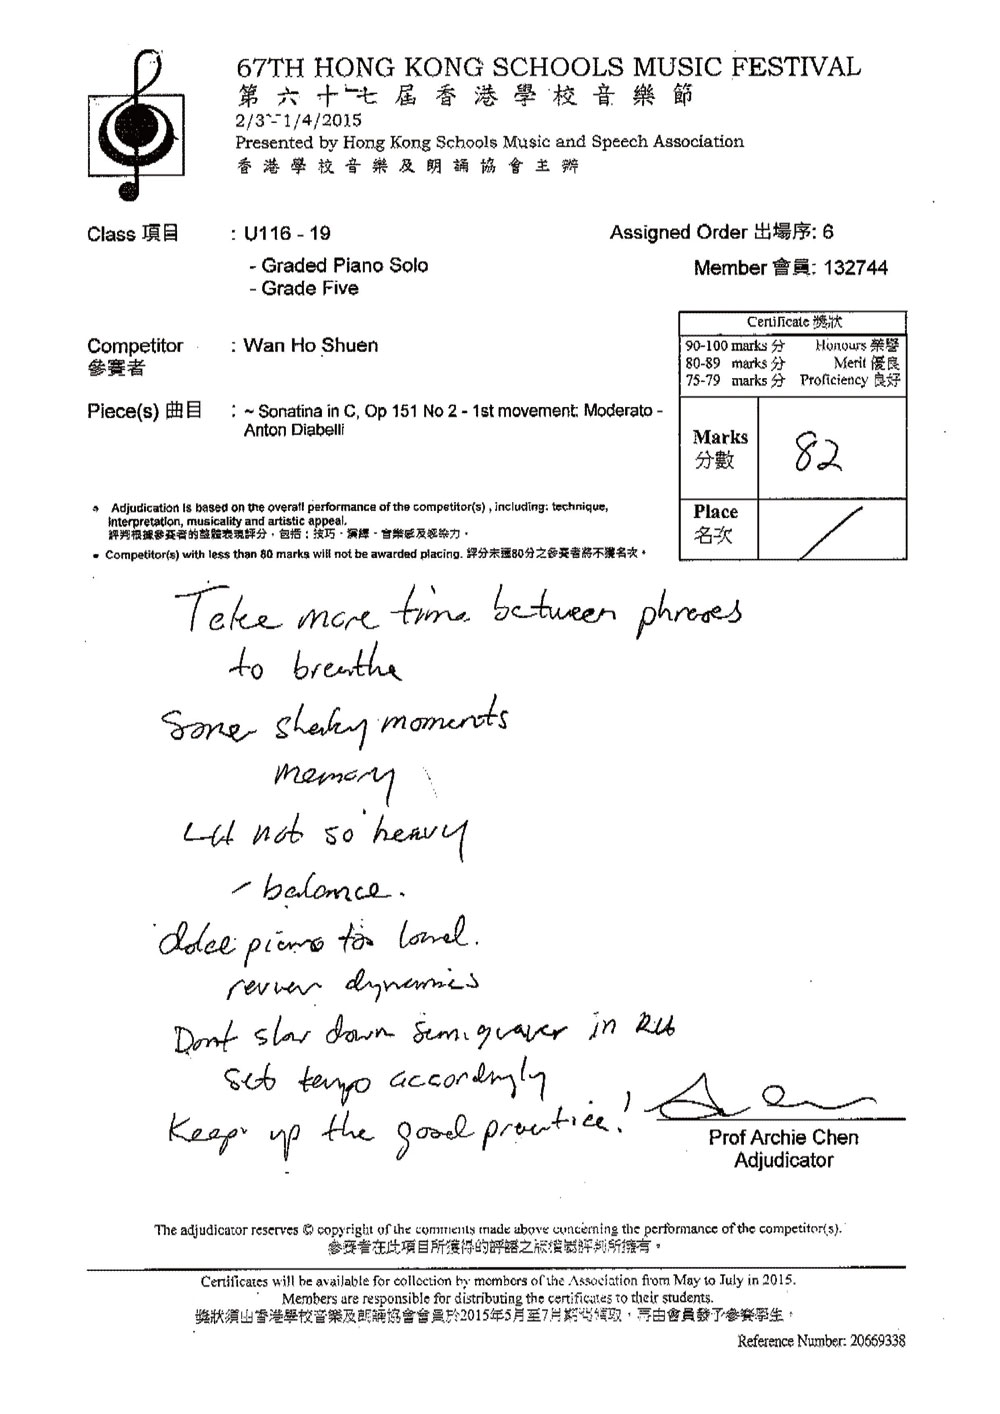 67TH HONG KONG SCHOOLS MUSIC FESTIVAL
第六十七屆香港學校音樂節
2/3 - 1/4/2015
Presented by Hong Kong Schools Music and Speech Association
香港學校音樂及朗誦協會主辦
Class 項目 : U116 - 19
Assigned Order 出場序: 6
- Graded Piano Solo
Member 會員: 132744
- Grade Five
Certificate 獎狀
90-100 marks 分 Honours 榮譽
80-89 marks 分 Merit 優良
75-79 marks 分 Proficiency 良好
Competitor : Wan Ho Shuen
參賽者
Piece(s) 曲目 : ~ Sonatina in C, Op 151 No 2 - 1st movement: Moderato -
Anton Diabelli
Marks
分數
82
Place
名次
Adjudication is based on the overall performance of the competitor(s) , including: technique,
interpretation, musicality and artistic appeal.
評判根據參賽者的整體表現評分，包括：技巧、演繹、音樂感及感染力。
Competitor(s) with less than 80 marks will not be awarded placing. 評分未達80分之參賽者將不獲名次。
Take more time between phrases
to breathe
Some shaky moments
memory
LH not so heavy
- balance.
dolce piano too loud.
review dynamics
Dont slow down semiquaver in RH
set tempo accordingly
Keep up the good practice!
Prof Archie Chen
Adjudicator
The adjudicator reserves © copyright of the comments made above concerning the performance of the competitor(s).
參賽者在此項目所獲得的評語之版權為評判所擁有。
Certificates will be available for collection by members of the Association from May to July in 2015.
Members are responsible for distributing the certificates to their students.
獎狀須由香港學校音樂及朗誦協會會員於2015年5月至7月期間領取，再由會員發予參賽學生。
Reference Number: 20669338